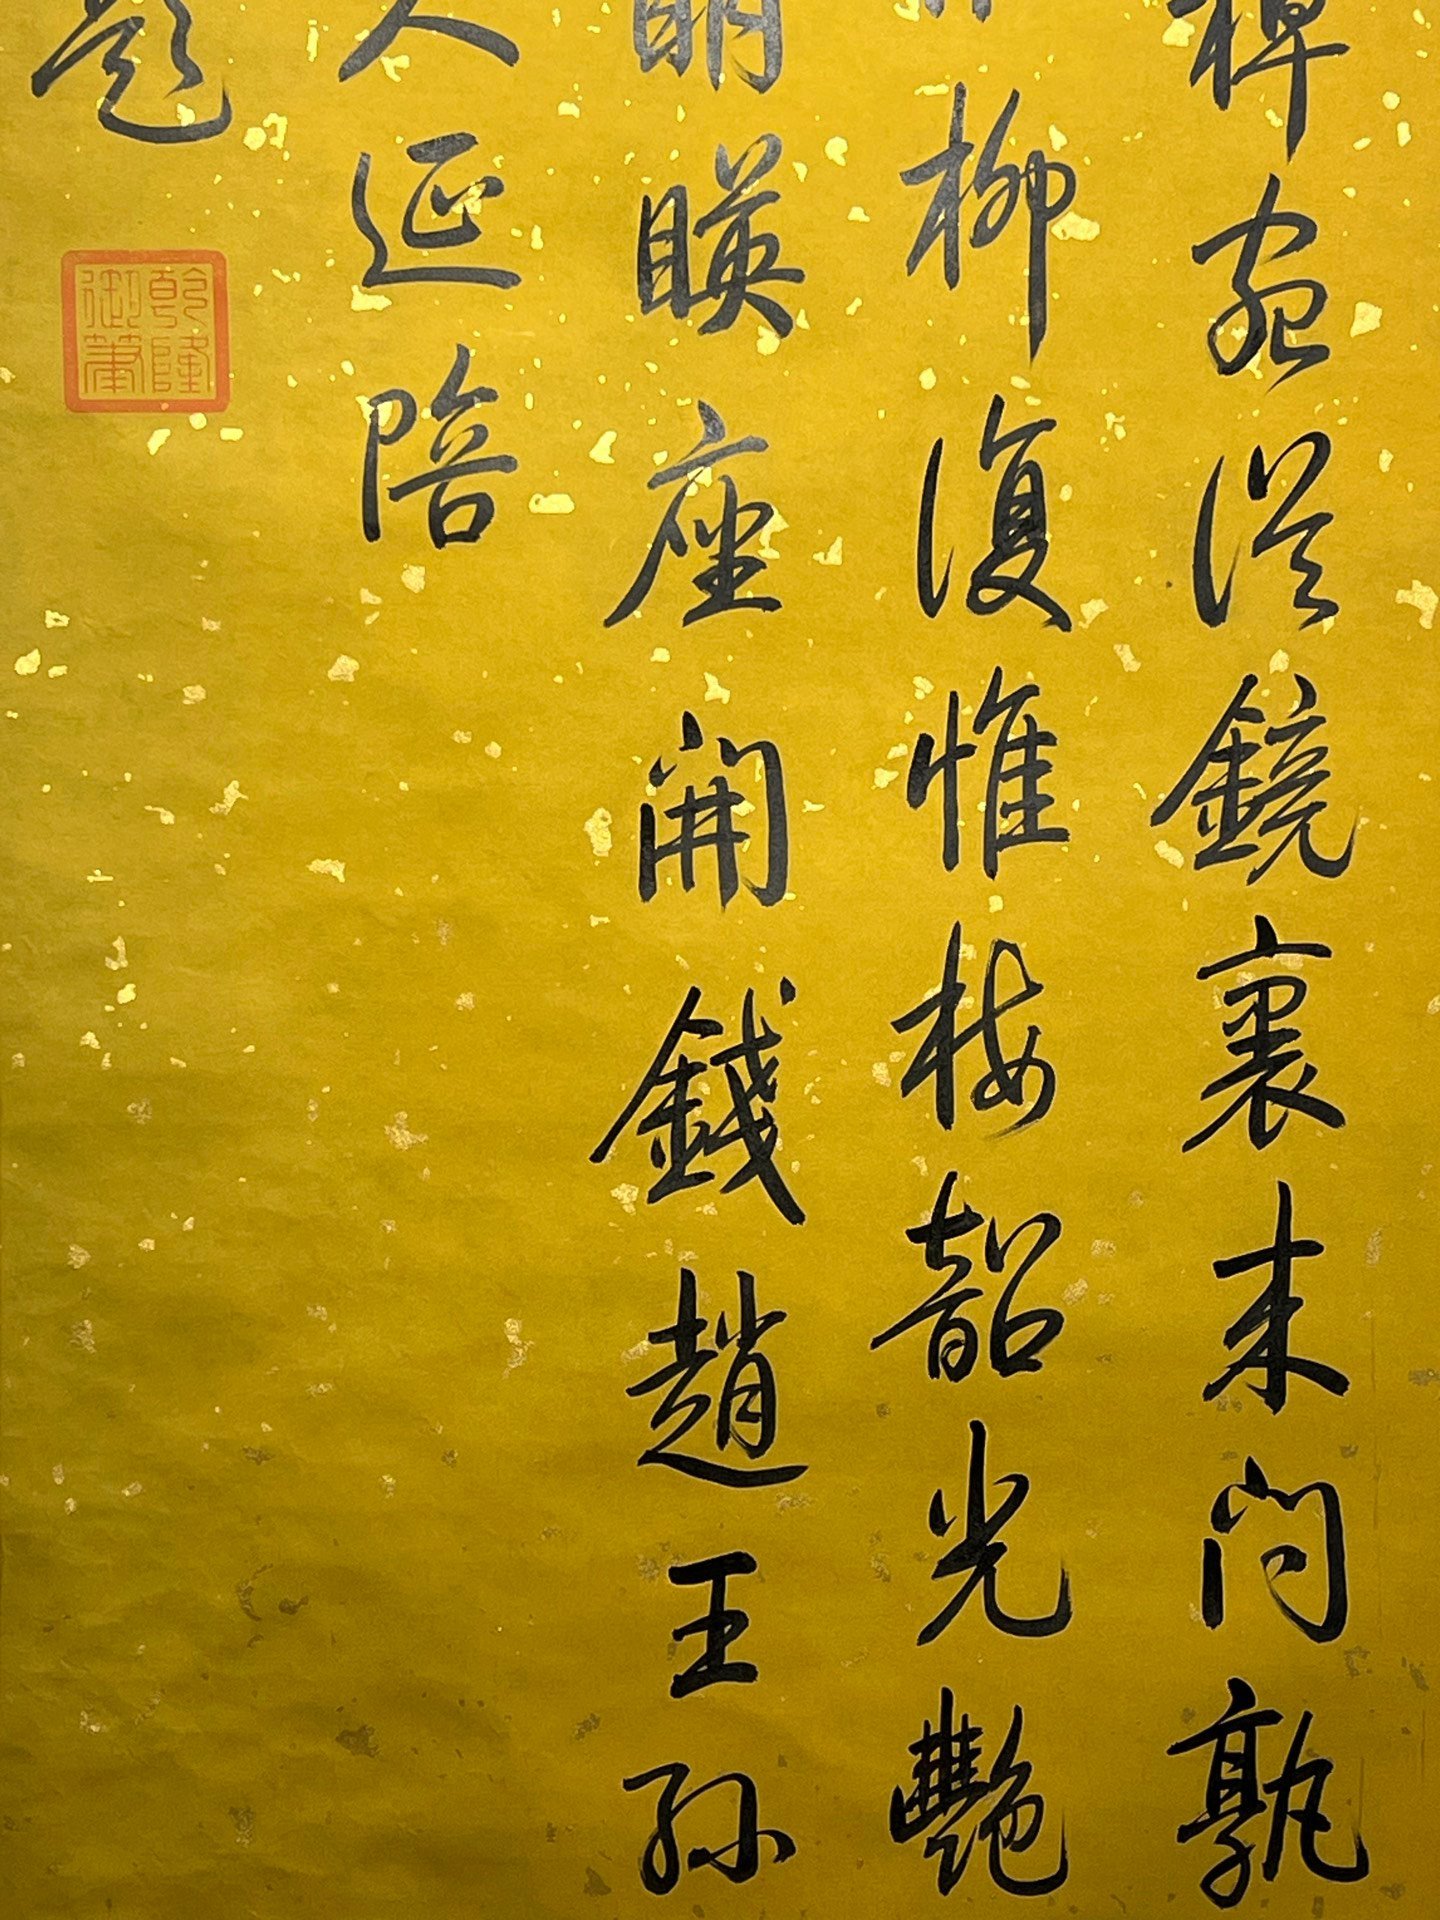 宛從鏡裏來問孰
柳復惟梅韶光艷
明暎座開錢趙王孫
人延陪
題
乾隆
御筆